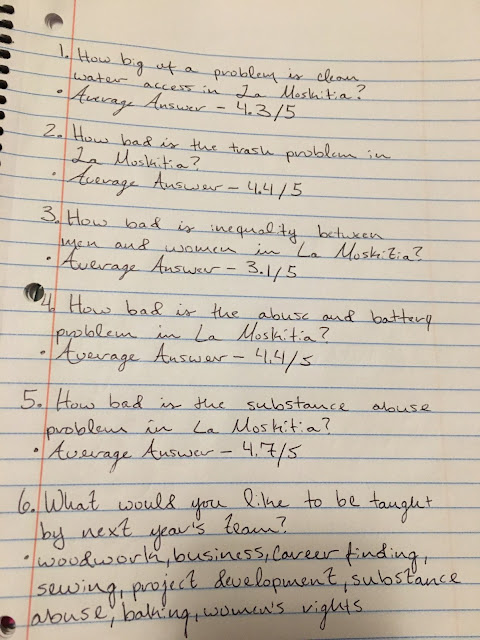 1. How big of a problem is clean
water access in La Moskitia?
• Average Answer – 4.3/5
2. How bad is the trash problem in
La Moskitia?
• Average Answer – 4.4/5
3. How bad is inequality between
men and women in La Moskitia?
• Average Answer – 3.1/5
4. How bad is the abuse and battery
problem in La Moskitia?
• Average Answer – 4.4/5
5. How bad is the substance abuse
problem in La Moskitia?
• Average Answer – 4.7/5
6. What would you like to be taught
by next year's team?
• woodwork, business, career finding,
sewing, project development, substance
abuse, baking, women's rights